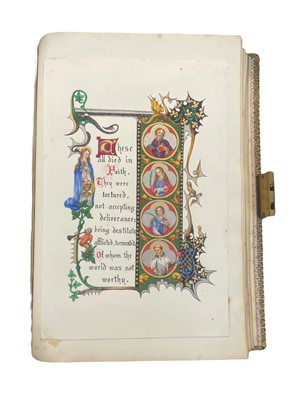 These
all died in
Faith.
They were
tortured,
not accepting
deliverance;
being destitute
afflicted, tormented
Of whom the
world was not
worthy.